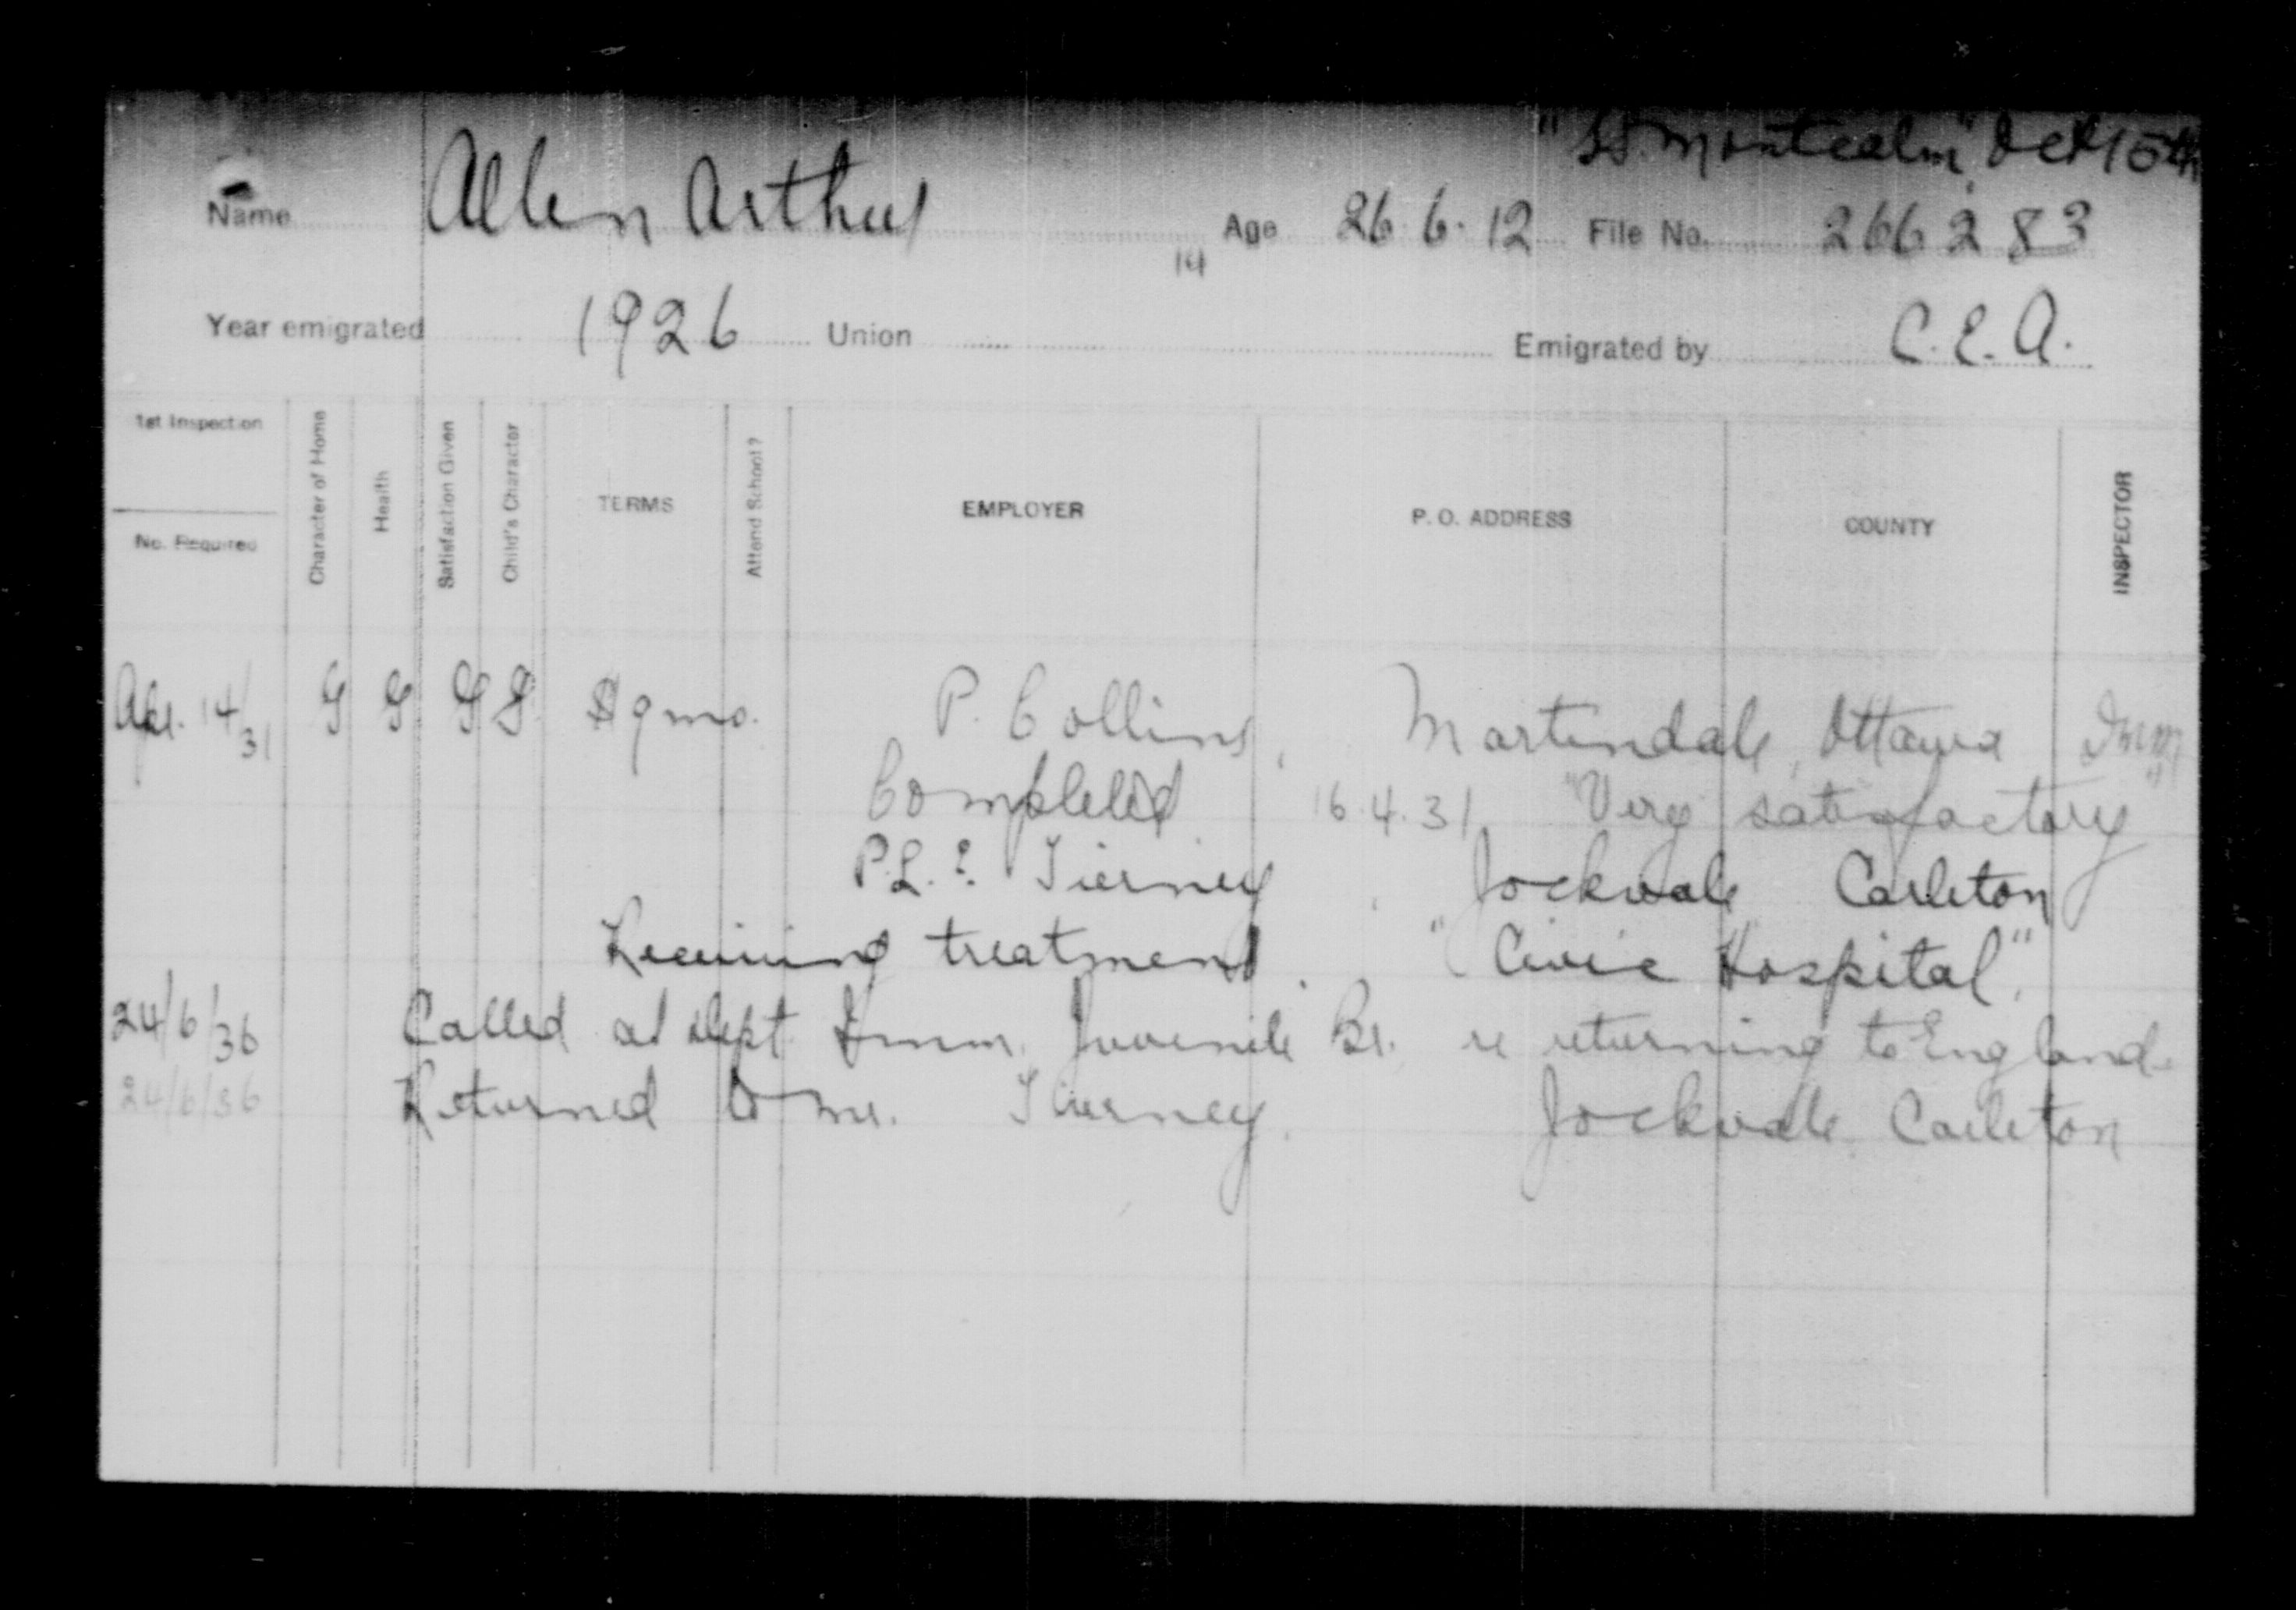 "SS. Montcalm" Oct 15th
Name Allen Arthur Age 26.6.12 File No. 266283
14
Year emigrated 1926 Union Emigrated by C.E.A.
1st Inspection
No. Required
Character of Home
Health
Satisfaction Given
Child's Character
TERMS
Attend School?
EMPLOYER
P. O. ADDRESS
COUNTY
INSPECTOR
Apl. 14/31 G G G G $9 mo. P. Collins, Martindale, Ottawa
Completed 16.4.31 "Very satisfactory"
P.L.E. Tierney Jockvale Carleton
Receiving treatment. "Civic Hospital."
24/6/36 Called at Dept. Imm. Juvenile Br. re returning to England.
24/6/36 Returned to Mr. Tierney. Jockvale Carleton